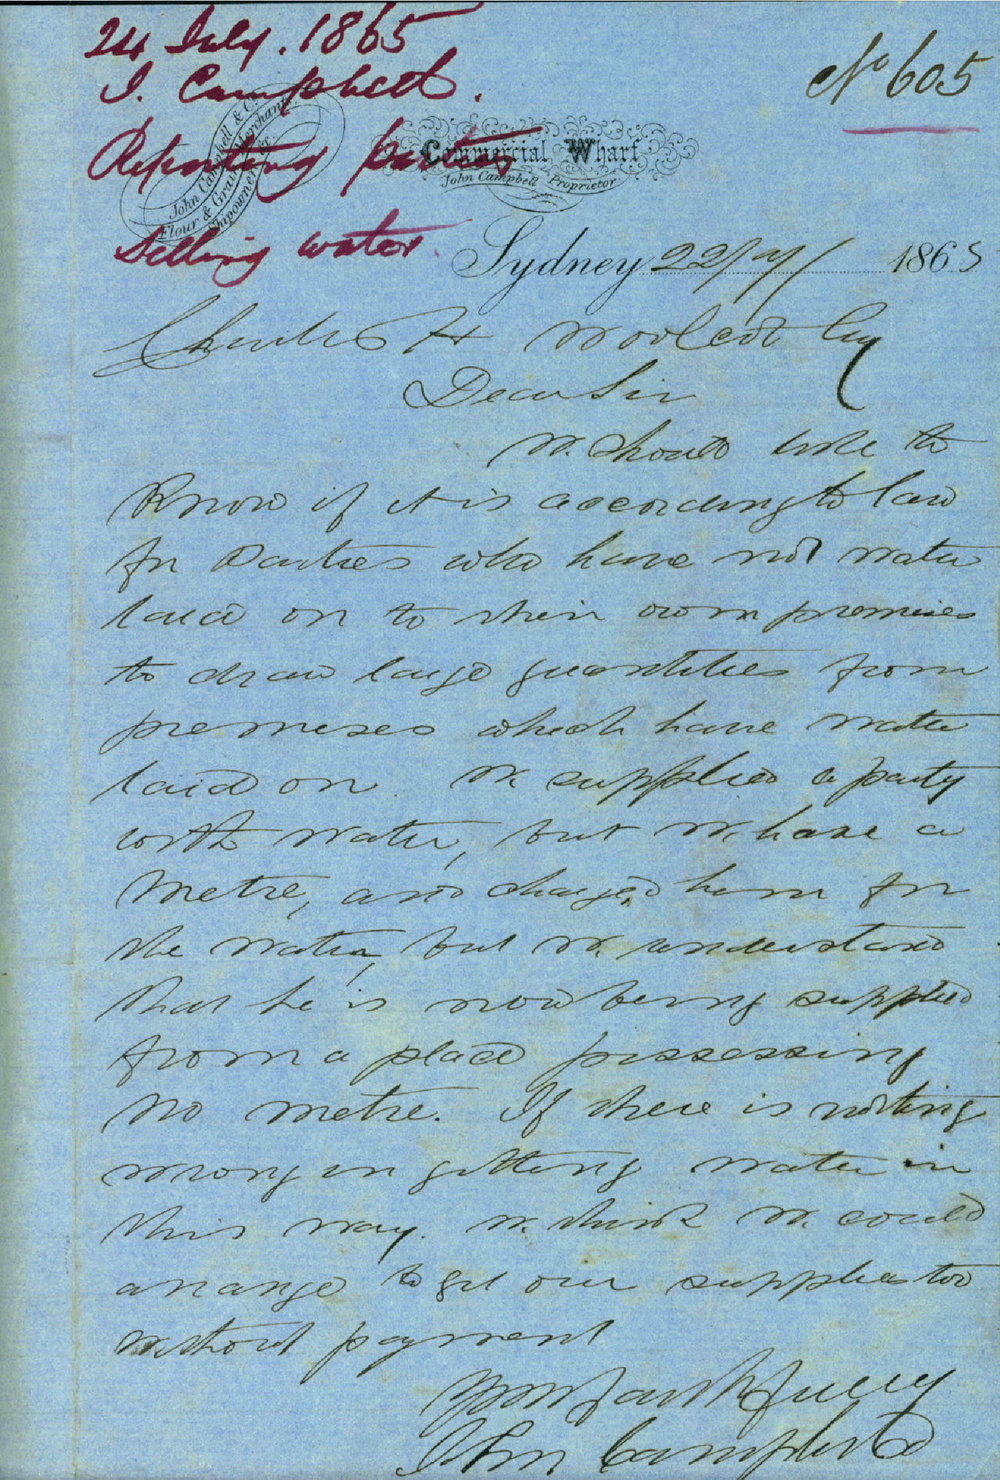 24 July. 1865
J. Campbell.
Reporting parties
Selling water.
No 605
John Campbell & Co.
Flour & Grain Merchants
Shipowners &c
Commercial Wharf
John Campbell Proprietor
Sydney 22/7/ 1865
Charles H Woolcott Esq
Dear Sir
We should like to
know if it is according to law
for Parties who have not water
laid on to their own premises
to draw large quantities from
premises which have water
laid on. We supplied a party
with water, but we have a
Metre, and charged him for
the water, but we understand
that he is now being supplied
from a place possessing
no metre. If there is nothing
wrong in getting water in
this way. We think we could
arrange to get our supplies too
without payment
Yours faithfully
John Campbell